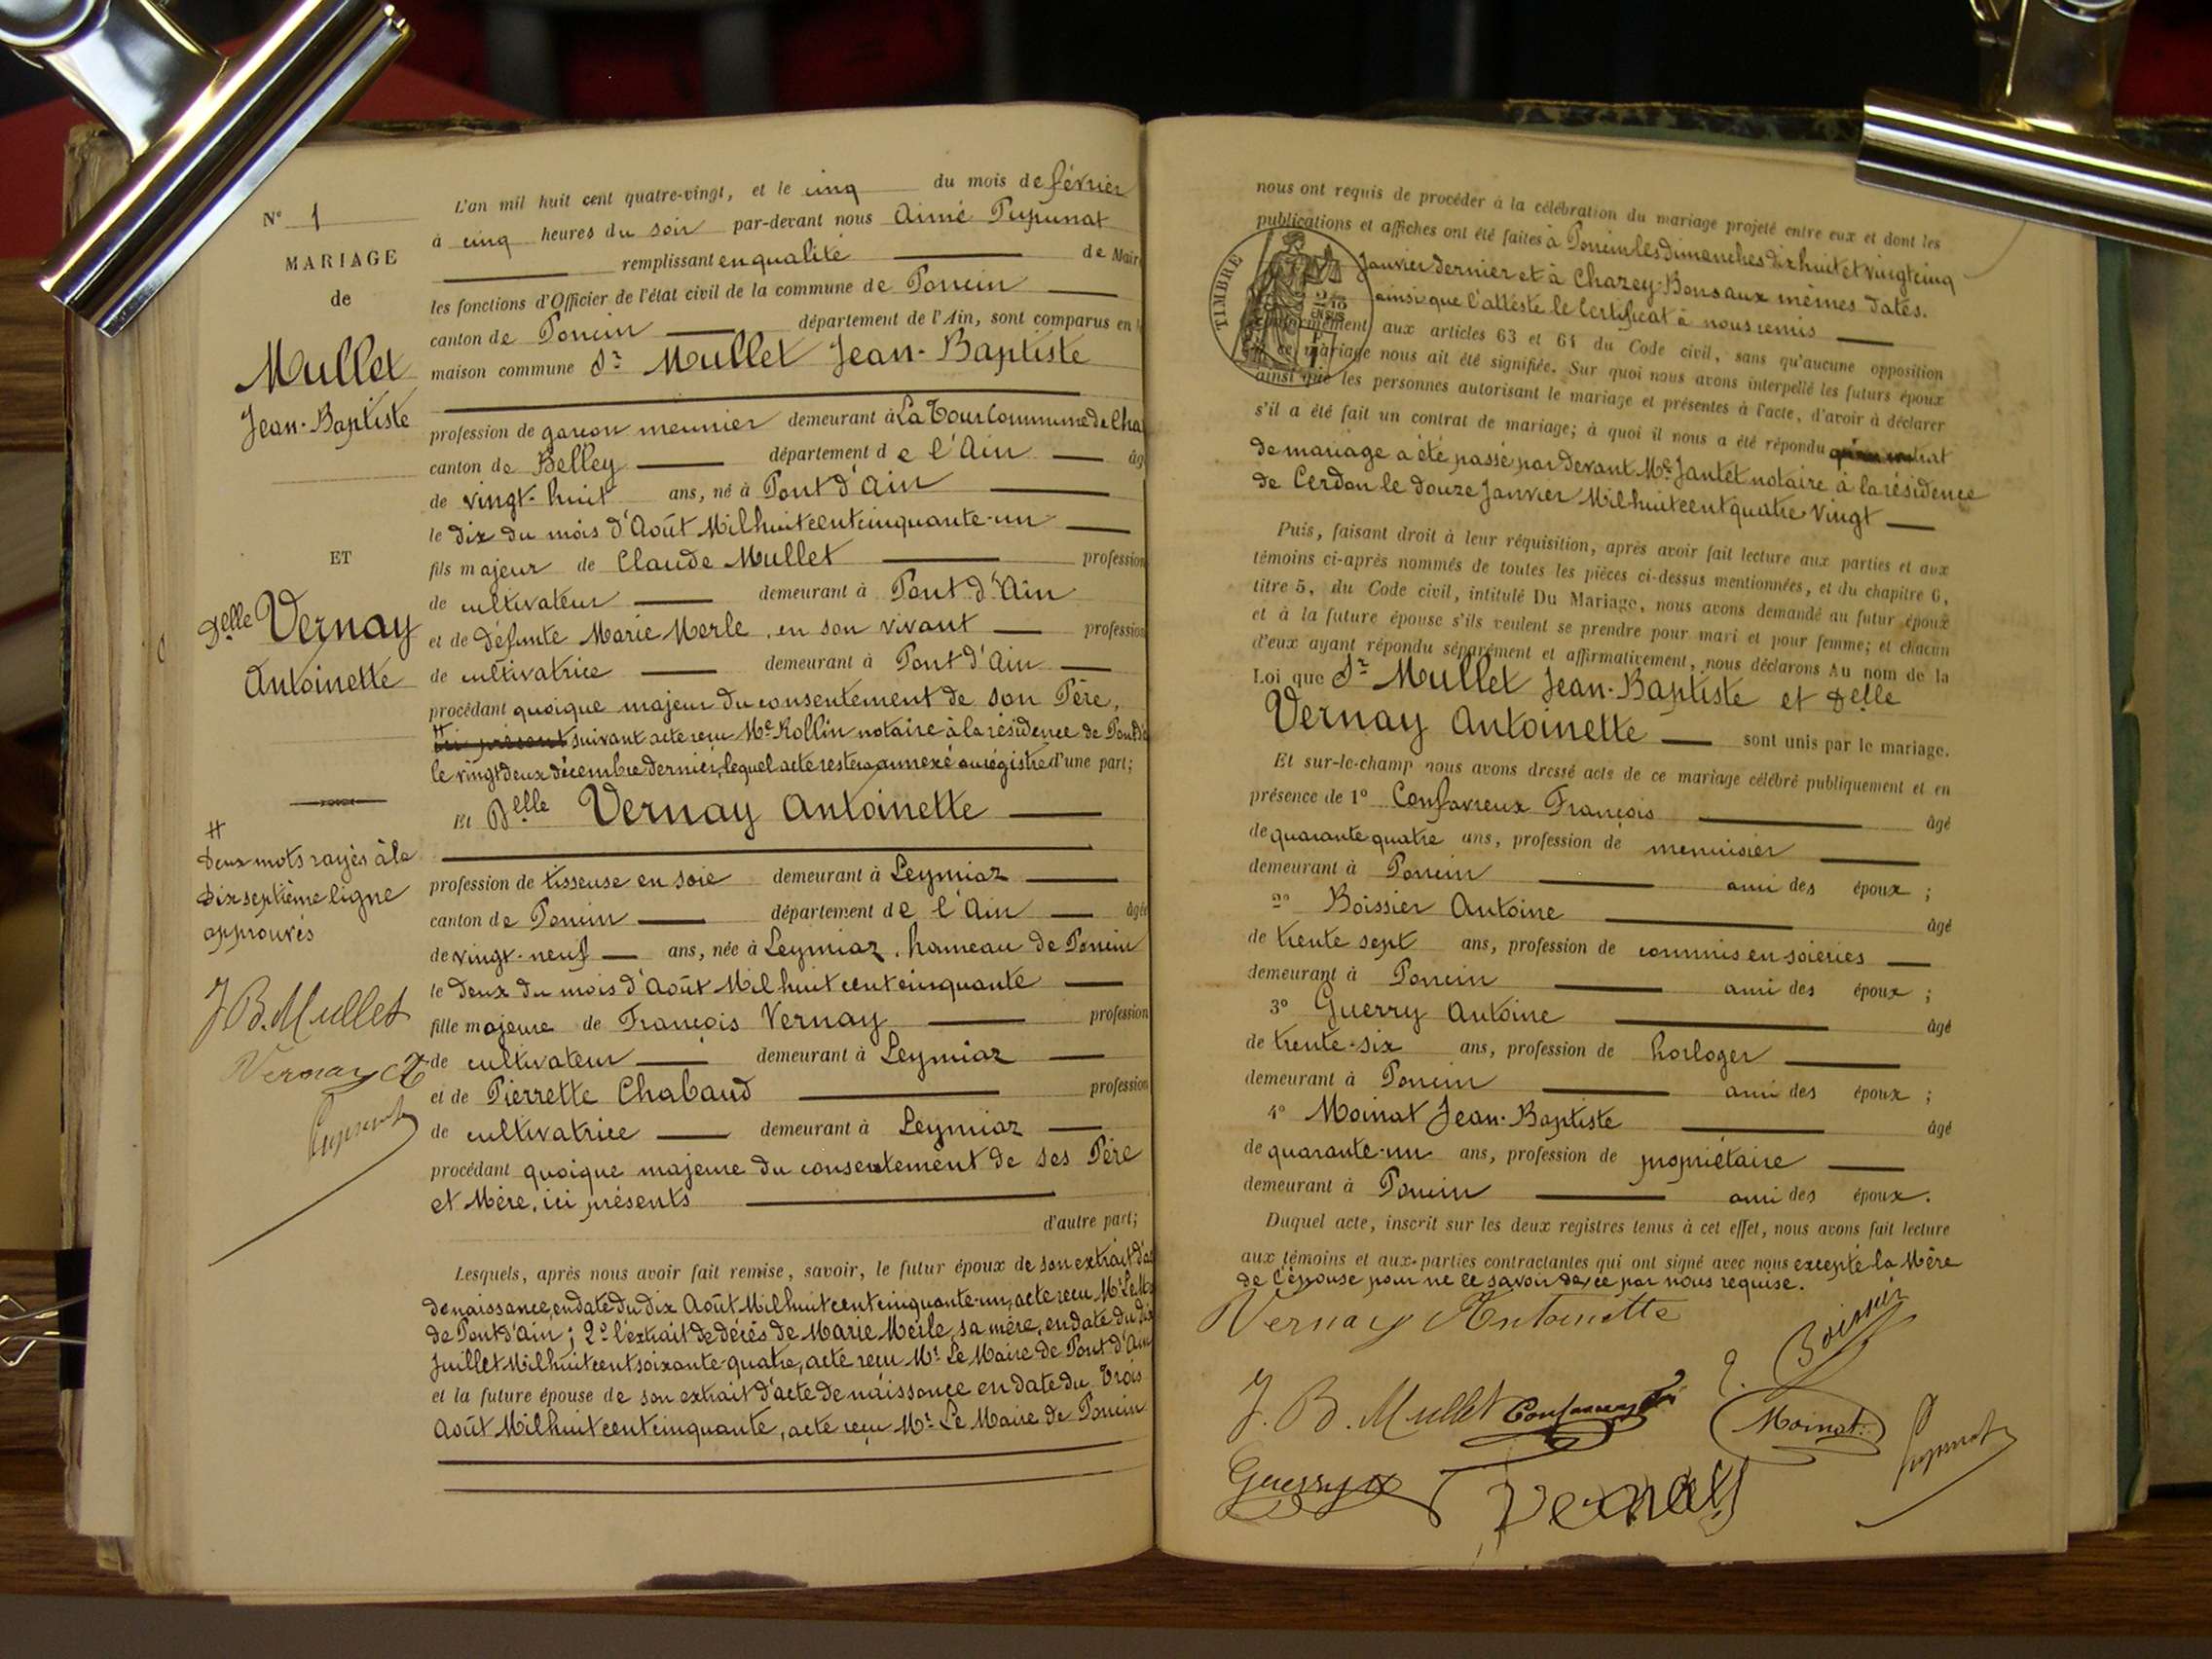 N° 1
MARIAGE
de
Mullet
Jean-Baptiste
ET
Delle Vernay
Antoinette
#
Deux mots rayés à la
dix septième ligne
approuvés
J B. Mullet
Vernay A
Pupunat
L'an mil huit cent quatre-vingt, et le cinq du mois de février
à cinq heures du soir par-devant nous Aimé Pupunat
remplissant en qualité de Maire
les fonctions d'Officier de l'état civil de la commune de Poncin
canton de Poncin département de l'Ain, sont comparus en la
maison commune Sr Mullet Jean-Baptiste
profession de garçon meunier demeurant à La Tour Commune de Cha
canton de Belley département de l'Ain âg
de vingt-huit ans, né à Pont d'Ain
le dix du mois d'Août Mil huit cent cinquante-un
fils majeur de Claude Mullet profession
de cultivateur demeurant à Pont d'Ain
et de défunte Marie Merle, en son vivant profession
de cultivatrice demeurant à Pont d'Ain
procédant quoique majeur du consentement de son Père,
# ici présent suivant acte reçu Me Rollin notaire à la résidence de Pont d'
le vingt deux décembre dernier, lequel acte restera annexé au régistre d'une part;
Et Delle Vernay Antoinette
profession de tisseuse en soie demeurant à Leymiaz
canton de Poncin département de l'Ain âgée
de vingt-neuf ans, née à Leymiaz, hameau de Poncin
le deux du mois d'Août Mil huit cent cinquante
fille majeure de François Vernay profession
de cultivateur demeurant à Leymiaz
et de Pierrette Chabaud profession
de cultivatrice demeurant à Leymiaz
procédant quoique majeure du consentement de ses Père
et Mère, ici présents
d'autre part;
Lesquels, après nous avoir fait remise, savoir, le futur époux de son extrait d'ac
de naissance, en date du dix Août Mil huit cent cinquante-un, acte reçu Mr Le M
de Pont d'Ain; 2° l'extrait de décès de Marie Merle, sa mère, en date du dix
Juillet Mil huit cent soixante-quatre, acte reçu Mr Le Maire de Pont d'Ain
et la future épouse de son extrait d'acte de naissance en date du Trois
Août Mil huit cent cinquante, acte reçu Mr Le Maire de Poncin
nous ont requis de procéder à la célébration du mariage projeté entre eux et dont les
publications et affiches ont été faites à Poncin les Dimanches dix huit et vingt cinq
Janvier dernier et à Chazey-Bons aux mêmes dates.
ainsi que l'atteste le Certificat à nous remis
TIMBRE
conformément aux articles 63 et 64 du Code civil, sans qu'aucune opposition
à ce mariage nous ait été signifiée. Sur quoi nous avons interpellé les futurs époux
ainsi que les personnes autorisant le mariage et présentes à l'acte, d'avoir à déclarer
s'il a été fait un contrat de mariage; à quoi il nous a été répondu qu'un contrat
de mariage a été passé par devant Me Jantet notaire à la résidence
de Cerdon le douze Janvier Mil huit cent quatre-Vingt
Puis, faisant droit à leur réquisition, après avoir fait lecture aux parties et aux
témoins ci-après nommés de toutes les pièces ci-dessus mentionnées, et du chapitre 6,
titre 5, du Code civil, intitulé Du Mariage, nous avons demandé au futur époux
et à la future épouse s'ils veulent se prendre pour mari et pour femme; et chacun
d'eux ayant répondu séparément et affirmativement, nous déclarons Au nom de la
Loi que Sr Mullet Jean-Baptiste et Delle
Vernay Antoinette sont unis par le mariage.
Et sur-le-champ nous avons dressé acte de ce mariage célébré publiquement et en
présence de 1° Confavreux François âgé
de quarante quatre ans, profession de menuisier
demeurant à Poncin ami des époux;
2° Boissier Antoine âgé
de trente sept ans, profession de commis en soieries
demeurant à Poncin ami des époux;
3° Guerry Antoine âgé
de trente-six ans, profession de horloger
demeurant à Poncin ami des époux;
4° Moinat Jean-Baptiste âgé
de quarante-un ans, profession de propriétaire
demeurant à Poncin ami des époux.
Duquel acte, inscrit sur les deux registres tenus à cet effet, nous avons fait lecture
aux témoins et aux parties contractantes qui ont signé avec nous excepté la Mère
de l'épouse pour ne le savoir de ce par nous requise.
Vernay Antoinette
Boissier
J. B. Mullet Confavreux
Moinat
Pupunat
Guerry
Vernay